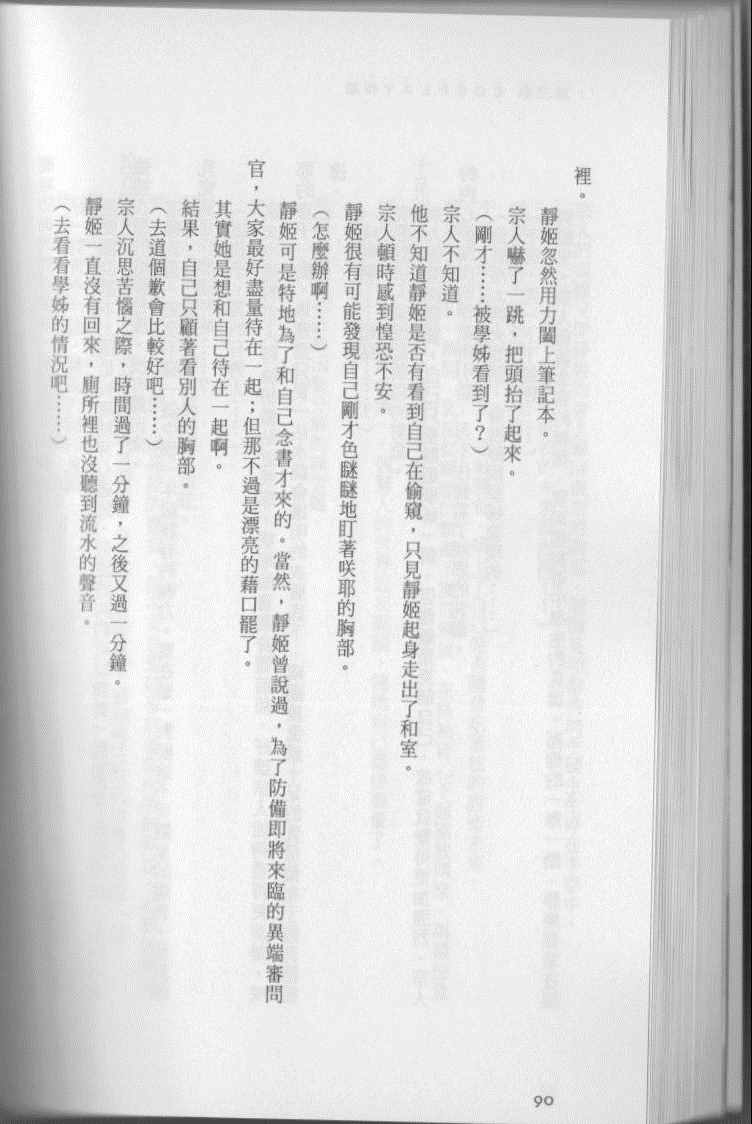 裡。
靜姬忽然用力闔上筆記本。
宗人嚇了一跳，把頭抬了起來。
（剛才……被學姊看到了？）
宗人不知道。
他不知道靜姬是否有看到自己在偷窺，只見靜姬起身走出了和室。
宗人頓時感到惶恐不安。
靜姬很有可能發現自己剛才色瞇瞇地盯著咲耶的胸部。
（怎麼辦啊……）
靜姬可是特地為了和自己念書才來的。當然，靜姬曾說過，為了防備即將來臨的異端審問
官，大家最好盡量待在一起；但那不過是漂亮的藉口罷了。
其實她是想和自己待在一起啊。
結果，自己只顧著看別人的胸部。
（去道個歉會比較好吧……）
宗人沉思苦惱之際，時間過了一分鐘，之後又過一分鐘。
靜姬一直沒有回來，廁所裡也沒聽到流水的聲音。
（去看看學姊的情況吧……）
90